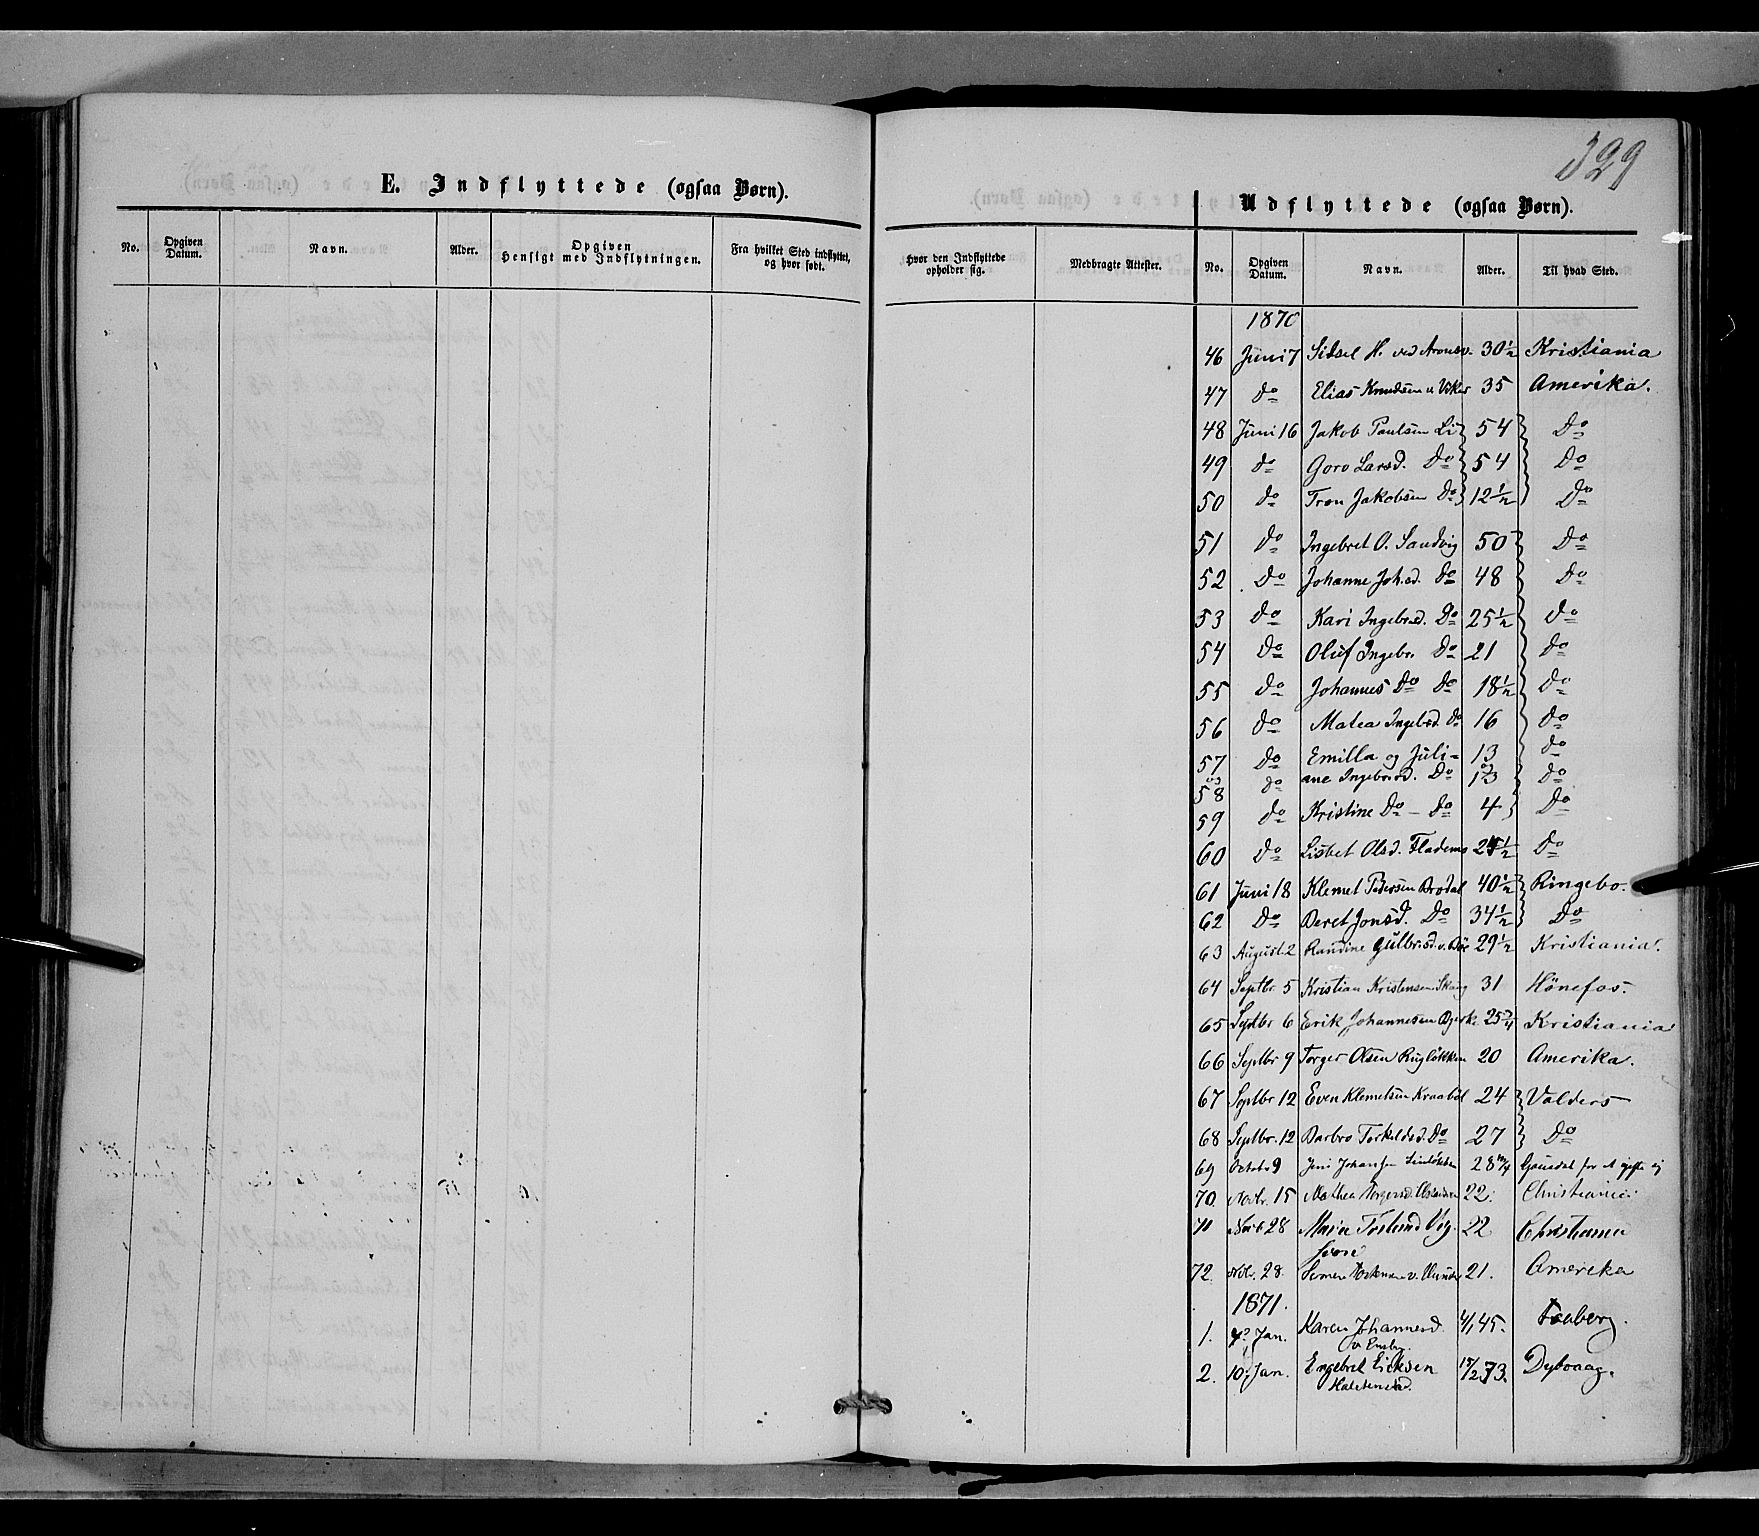 329
E. Indflyttede (ogsaa Børn).
No. Opgiven Datum. Navn. Alder. Opgiven Hensigt med Indflytningen. Fra hvilket Sted indflyttet, og hvor født.
Hvor den Indflyttede opholder sig. Medbragte Attester.
Udflyttede (ogsaa Børn).
No. Opgiven Datum. Navn. Alder. Til hvad Sted.
1870
46 Juni 7 Sidsel H. ved 30 1/2 Kristiania
47 do Elias Knudsen 35 Amerika.
48 Juni 16 Jakob Paulsen Li 54 Do
49 do Goro Larsd. Do 54 Do
50 do Tron Jakobsen Do 12 1/2 Do
51 do Ingebret O. Sandvig 50 Do
52 Do Johanne Joh.sd. Do 48 Do
53 do Kari Ingebr.sd. Do 25 1/2 do
54 Do Oluf Ingebr. Do 21 do
55 do Johannes Do Do 18 1/2 Do
56 do Matea Ingebr.sd. Do 16 Do
57 Do Emilla og Juli= 13 do
og 58 do ane Ingebr.sd. Do og 13 Do
59 do Kristine Do - Do 4 Do
60 Do Lisbet Olsd. 1/2 Do
61 Juni 18 Klemet Pedersen Brodal 40 1/2 Ringebo.
62 Do Beret Jonsd. Do 34 1/2 Do
63 August 2 Randine Gulbr.sd. v. 29 1/2 Kristiania.
64 Septbr 5 Kristian Kristensen 31 Hønefos.
65 Septbr 6 Erik Johannesen 25 Kristiania
66 Septbr 9 Torger Olsen Ringløkken 20 Amerika.
67 Septbr 12 Even Klemetsen Kraabøl 24 Valders
68 Septbr. 12 Barbro Torkildsd. Do 27 Do
69 Octobr 9 28 Gausdal for at gifte sig
70. Novbr. 15 Mathea 22. Christiania
71 Novb 28 22 Christiania
72. Nvbr. 28. 21. Amerika
1871.
1. Jan. Karen Johannesd. 45. Faaberg.
2. 10. Jan. Engebret Eriksen 73. Dybvaag.